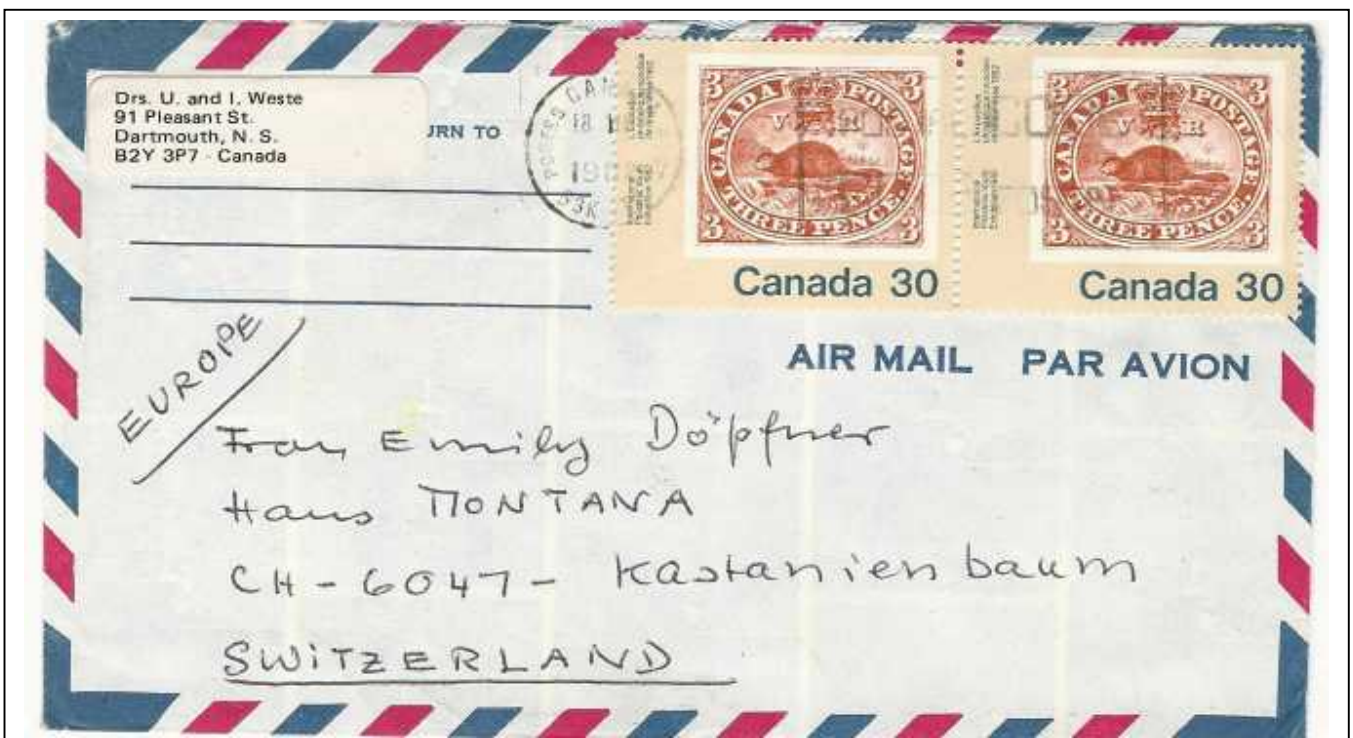 Drs. U. and I. Weste
91 Pleasant St.
Dartmouth, N. S.
B2Y 3P7 - Canada
URN TO
3 3
CANADA POSTAGE
V R
THREE PENCE.
3 3
Canada 30
3 3
CANADA POSTAGE
V R
THREE PENCE.
3 3
Canada 30
AIR MAIL PAR AVION
EUROPE
Frau Emily Döpfner
Haus MONTANA
CH-6047- Kastanienbaum
SWiTZERLAND